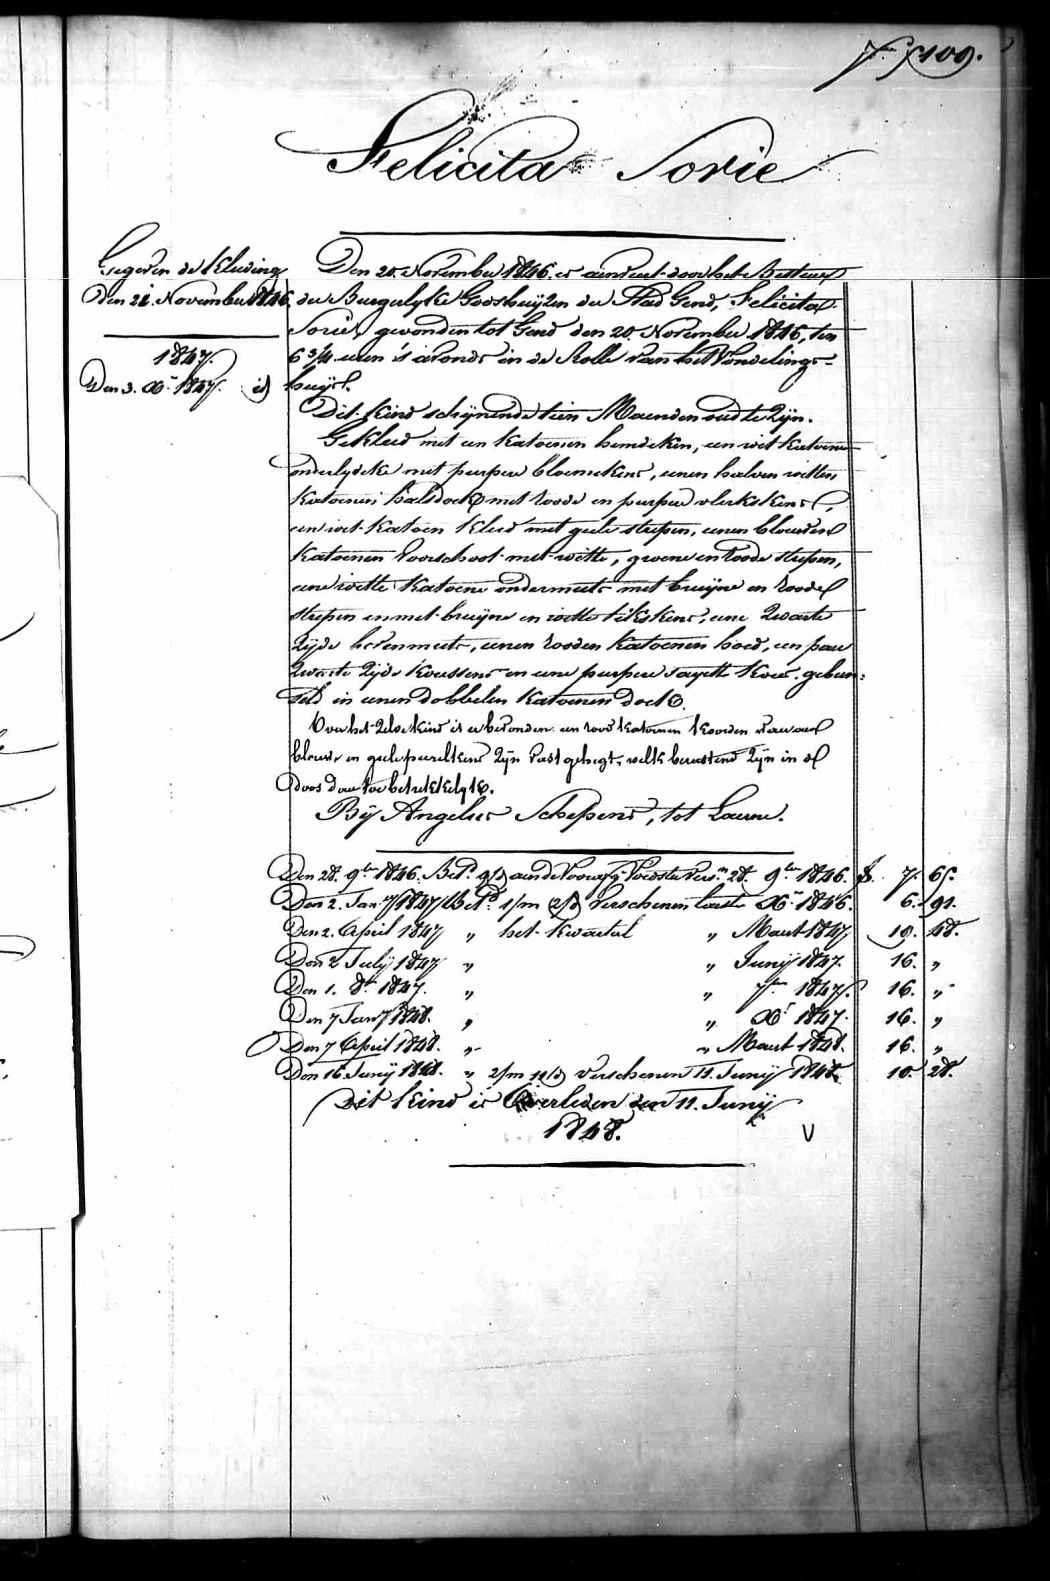 109.
Felicita Sorie
Gegeven de Kleeding
Den 21. November 1846.
1847.
Den 3. Xbr 1847. id
Den 20. November 1846. is aenveert door het Bestuur
der Burgerlyke Godshuijzen der Stad Gend, Felicita
Sorie, gevonden tot Gend den 20 November 1846, ten
6 3/4 uren 's avonds in de Rolle van het Vondelings-
huijs.
Dit kind schijnende tien Maenden oud te Zijn.
Gekleed met een katoenen hemdeken, een wit katoenen
onderlydeke met purpere bloemekens, eenen halven witten
katoenen halsdoek met roode en purpere vlekskens,
een wit katoen kleed met gele strepen, eenen blauwen
katoenen voorschoot met witte, groene en roode strepen,
eene witte katoene ondermuts met bruijne en roode
strepen en met bruijne en witte tikskens, eene Zwarte
Zijde bovenmuts, eenen rooden katoenen hoed, een paer
Zwarte Zijde koussens en eene purpere sayette kous. gebun:
seld in eenen dobbelen katoenen doek.
Voor het Zelve kind is er bevonden een rood katoenen koorden waer aen
blauwe en gele peerelkens Zijn vast gehegt, welk berustend Zijn in de
doos daer toe betrekkelijk.
Bij Angelus Schepens, tot Lauwe.
Den 28. 9ber 1846. Bet. 9/d aen de Voorzg. Voedster vers.n 28. 9ber 1846. f. 7. 65.
Den 2. Jan.y 1847 Bet.d 1/m 2/d verschenen laeste Xbr 1846. 6. 91.
Den 2. April 1847 " het kwartal " Maart 1847 19. 48.
Den 2 July 1847 " " Junij 1847. 16. "
Den 1. 8br 1847. " " 7ber 1847. 16. "
Den 7 Jan.y 1848. " " Xbr 1847. 16. "
Den 7 April 1848. " " Maart 1848. 16. "
Den 16. Junij 1848. " 2/m 11/d verschenen 11. Junij 1848. 10. 28.
Dit kind is Overleden den 11. Junij
1848.
V